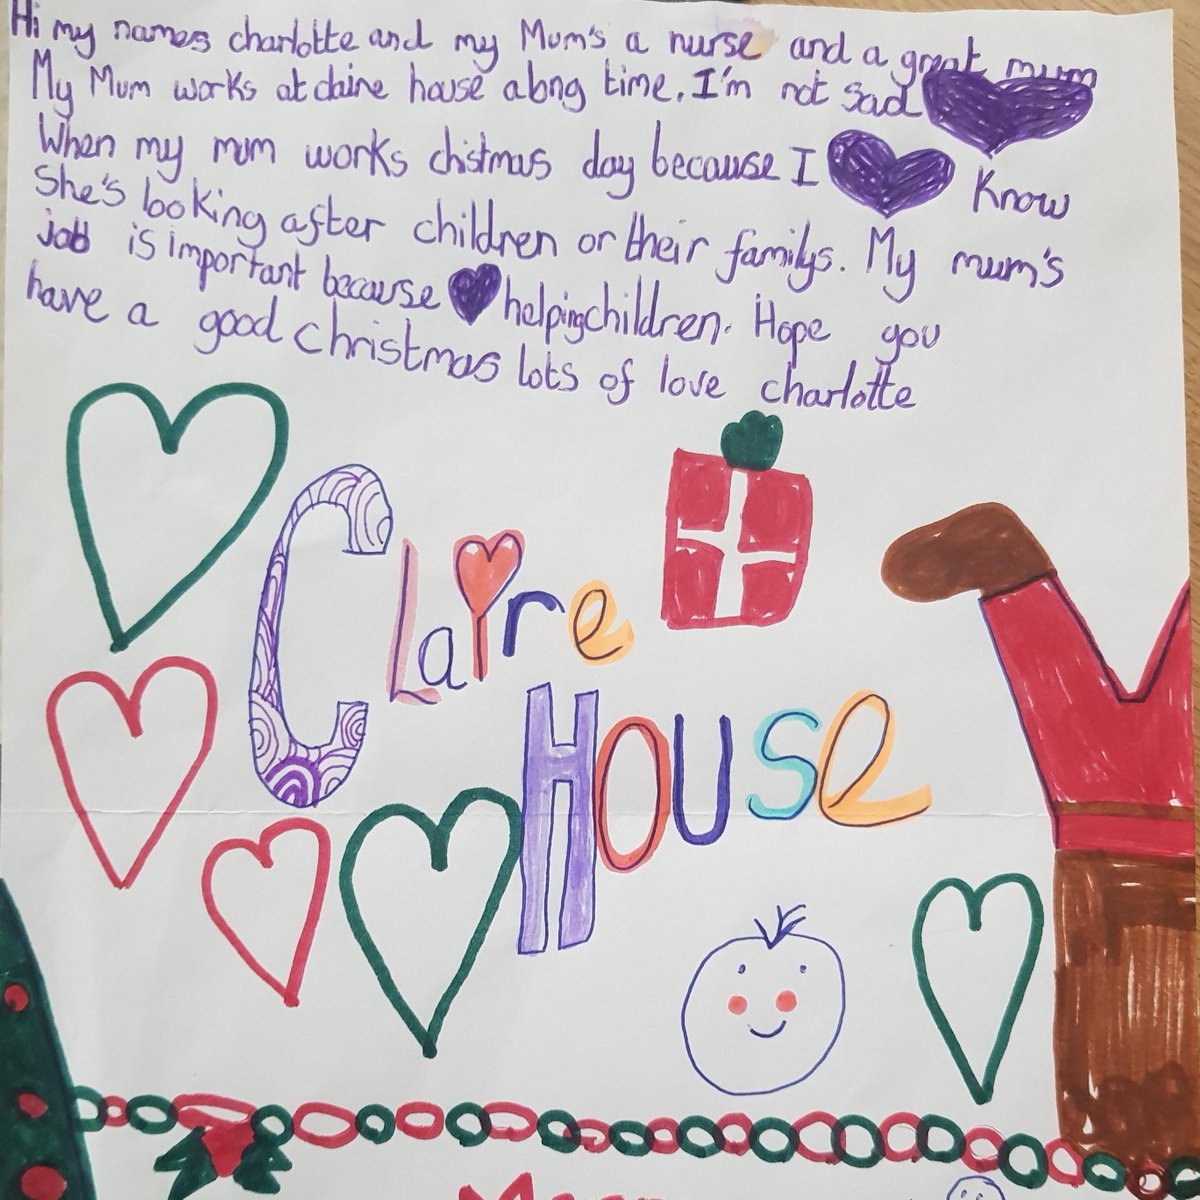 Hi my names charlotte and my Mum's a nurse and a great mum
My Mum works at claire house along time. I'm not sad
When my mum works chistmas day because I know
She's looking after children or their familys. My mum's
job is important because helping children. Hope you
have a good christmas lots of love charlotte
Claire
House